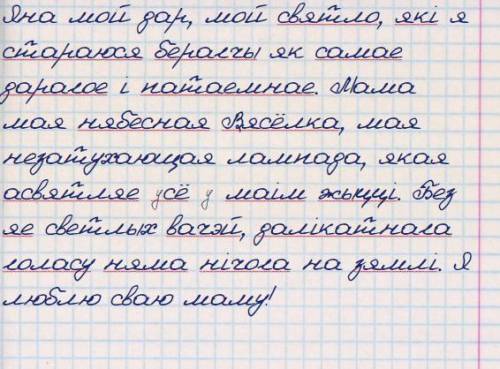 Яна мой дар, мой святло, які я
стараюся берагчы як самае
дарагое і патаемнае. Мама
мая нябесная Вясёлка, мая
незатухающая лампада, якая
асвятляе ўсё ў маім жыцці. Без
яе светлых вачэй, далікатнага
голасу няма нічога на зямлі. Я
люблю сваю маму!